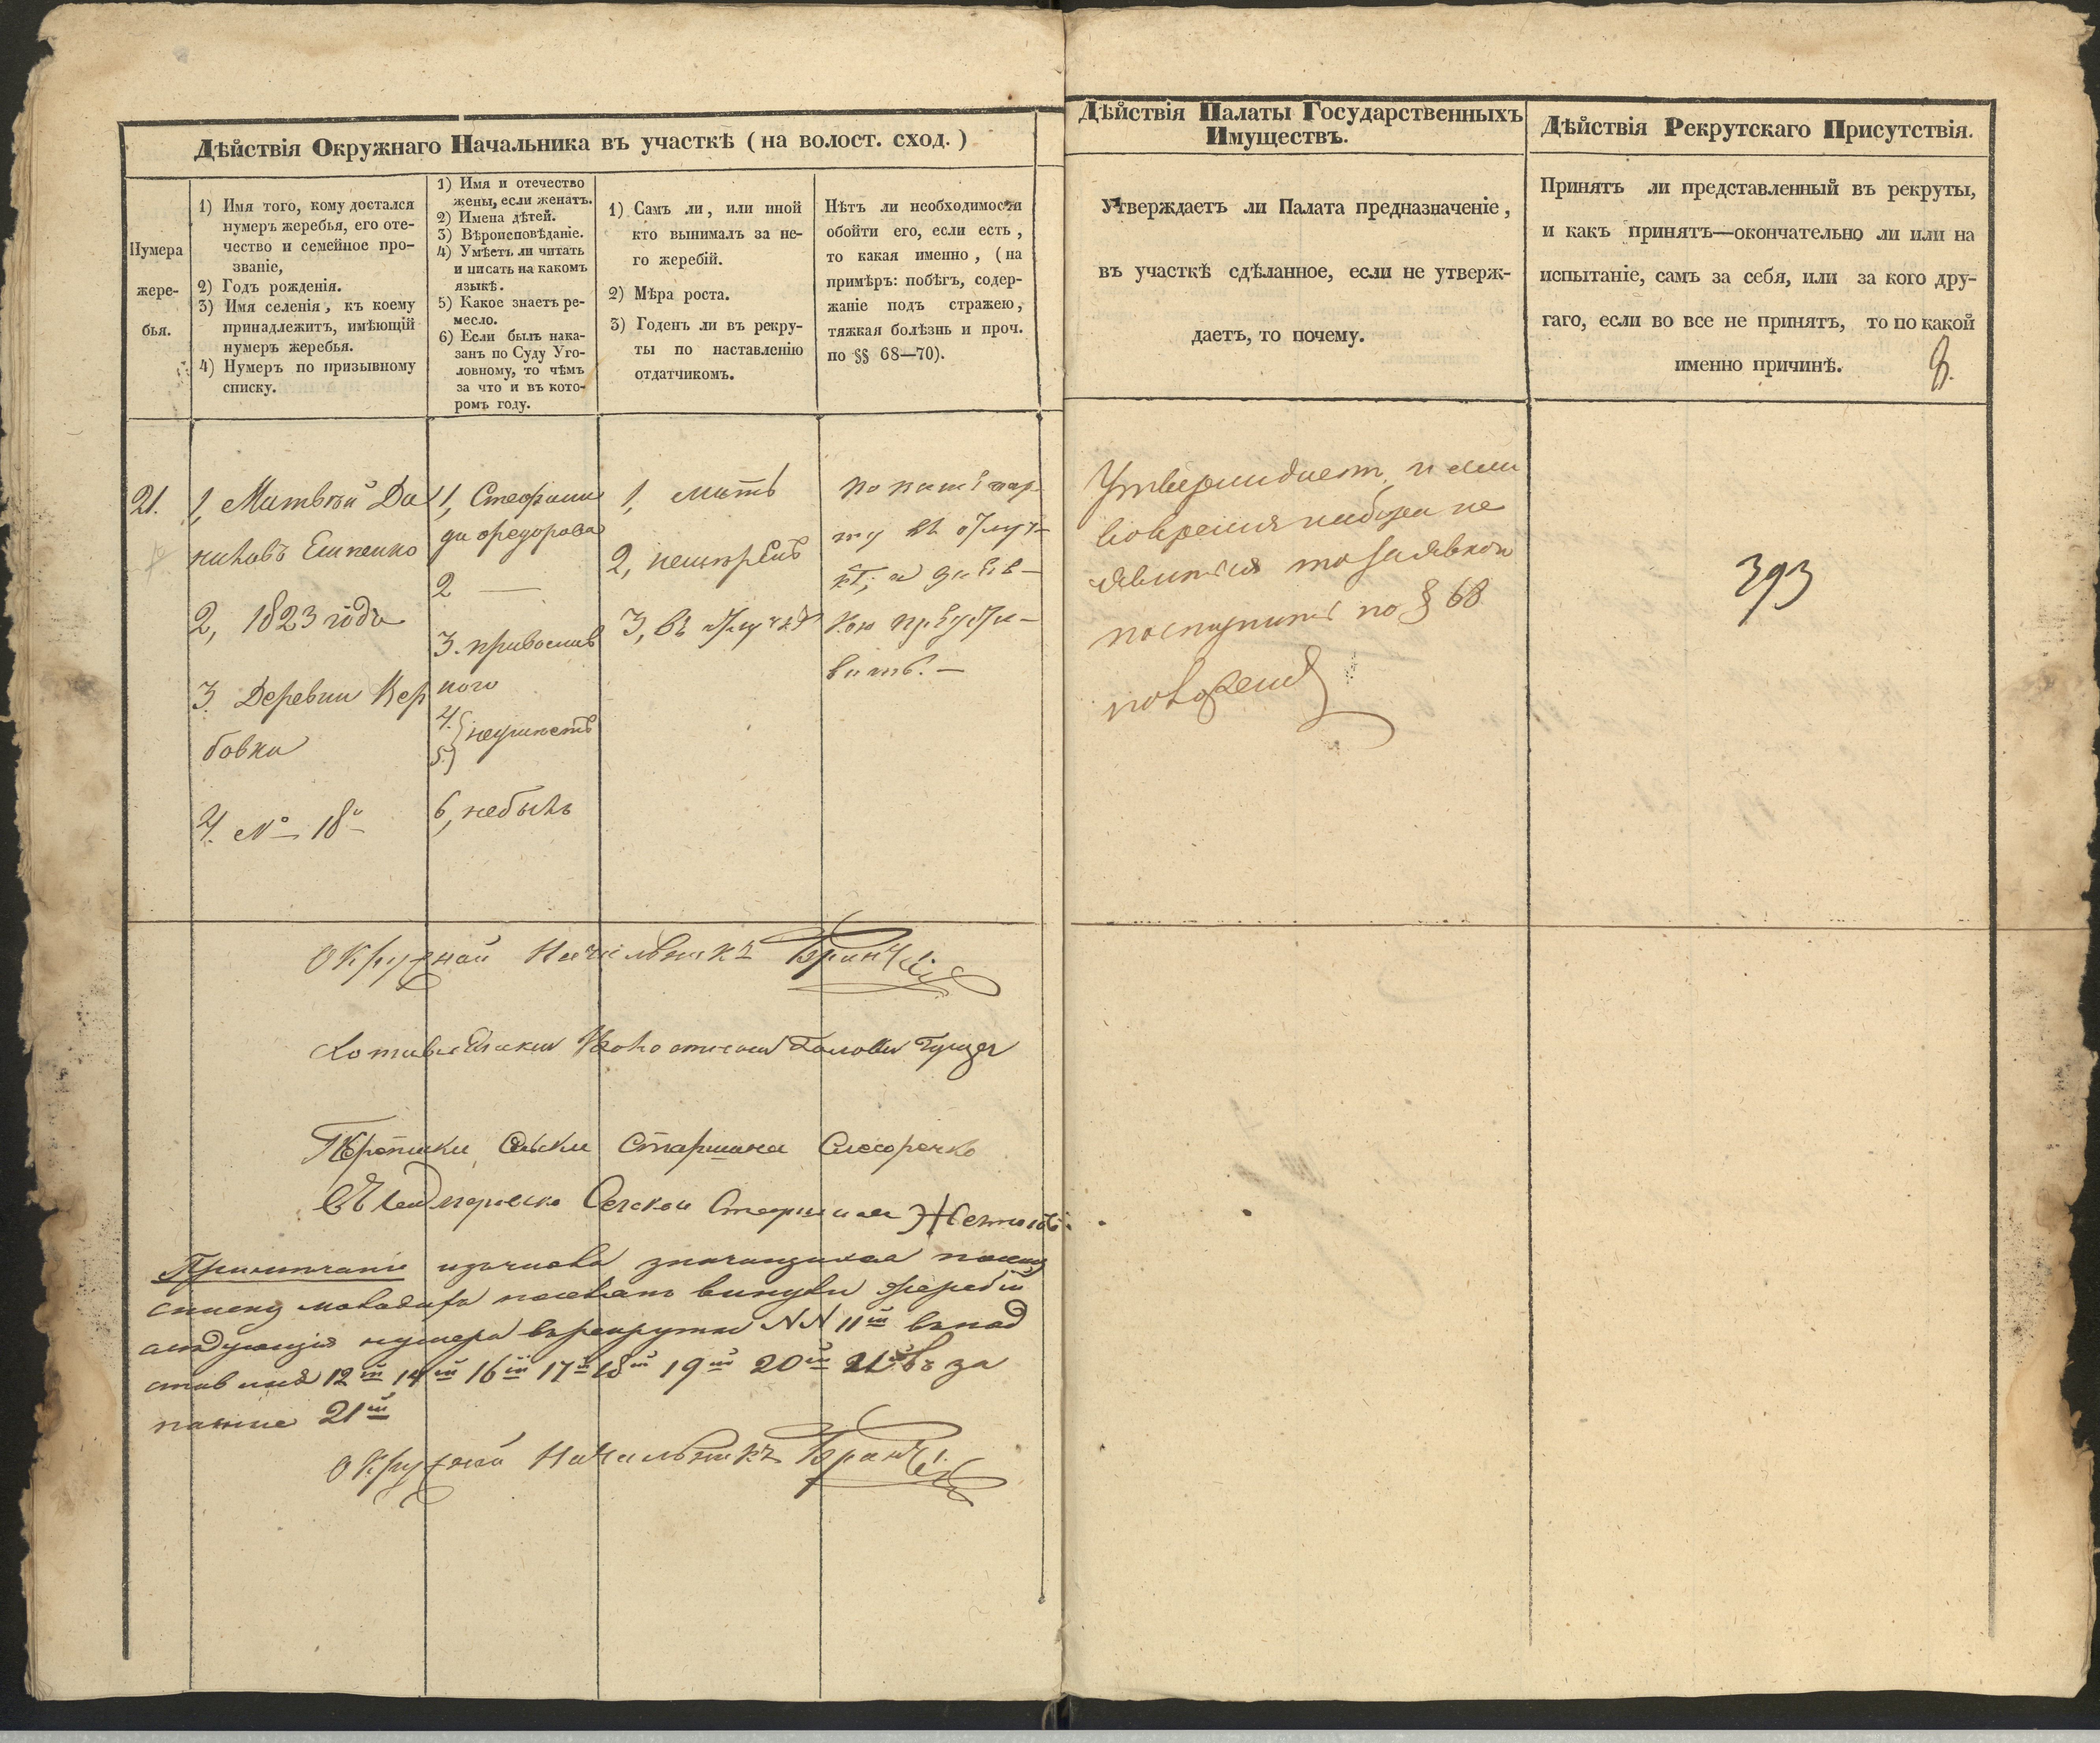 Дѣйствія Окружнаго Начальника въ участкѣ (на волост. сход.)
Нумера
жере-
бья.
1) Имя того, кому достался
нумеръ жеребья, его оте-
чество и семейное про-
званіе,
2) Годъ рожденія.
3) Имя селенія, къ коему
принадлежитъ, имѣющій
нумеръ жеребья.
4) Нумеръ по призывному
списку.
1) Имя и отечество
жены, если женатъ.
2) Имена дѣтей.
3) Вѣроисповѣданіе.
4) Умѣетъ ли читать
и писать на какомъ
языкѣ.
5) Какое знаетъ ре-
месло.
6) Если былъ нака-
занъ по Суду Уго-
ловному, то чѣмъ
за что и въ кото-
ромъ году.
1) Самъ ли, или иной
кто вынималъ за не-
го жеребій.
2) Мѣра роста.
3) Годенъ ли въ рекру-
ты по наставленію
отдатчикомъ.
Нѣтъ ли необходимости
обойти его, если есть,
то какая именно, (на
примѣръ: побѣгъ, содер-
жаніе подъ стражею,
тяжкая болѣзнь и проч.
по §§ 68—70).
21.
1, Матвѣй Да
ниловъ Еипенко
2, 1823 года
3. Деревни Кер
бовки
4. № 18й
1, Стефани
да федорова
2 —
3. православ
ного
4.
5.) неумѣетъ
6, небылъ
1, мать
2, неизмѣренъ
3, въ отлучкѣ
по паш
ту въ отлуч-
кѣ, и за
кою
вить. —
Окружной Начальникъ
Волостной Голова
Сельски Старшина Слесаренко
Сельской Старшина
Примѣчаніе изъ числа значащихся
списку вынули жеребіи
слѣдующія нумера въ рекруты NN 11й въ под
ставныя 12й 14й 16й 17й 18й 19й 20й 21й въ за
пасные 21й
Окружной Начальникъ
Дѣйствія Палаты Государственныхъ
Имуществъ.
Утверждаетъ ли Палата предназначеніе,
въ участкѣ сдѣланное, если не утверж-
даетъ, то почему.
Утверждаетъ, и если
вовремя набора не
явится то заявкою
поступить по § 68
положенія
Дѣйствія Рекрутскаго Присутствія.
Принятъ ли представленный въ рекруты,
и какъ принятъ—окончательно ли или на
испытаніе, самъ за себя, или за кого дру-
гаго, если во все не принятъ, то по какой
именно причинѣ.
8.
393